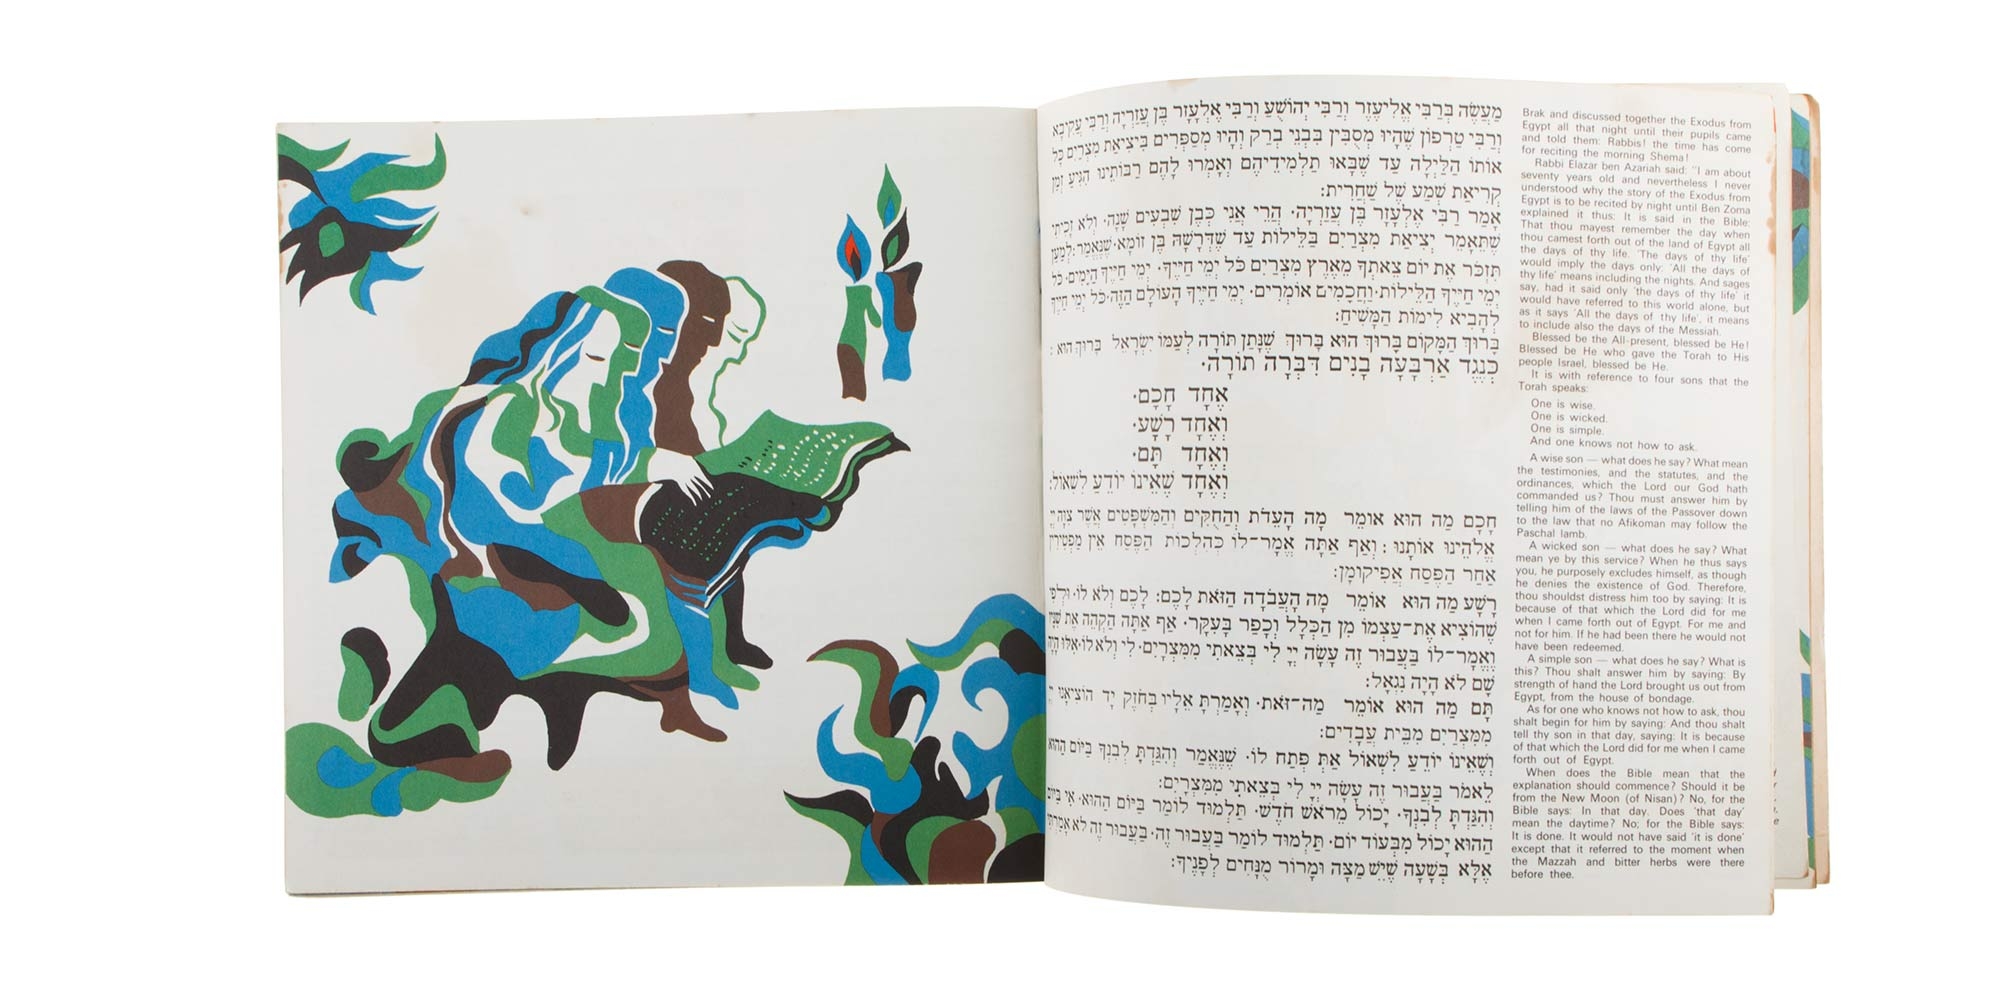 מַעֲשֶׂה בְּרַבִּי אֱלִיעֶזֶר וְרַבִּי יְהוֹשֻׁעַ וְרַבִּי אֶלְעָזָר בֶּן עֲזַרְיָה וְרַבִּי עֲקִיבָא
וְרַבִּי טַרְפוֹן שֶׁהָיוּ מְסֻבִּין בִּבְנֵי בְרַק וְהָיוּ מְסַפְּרִים בִּיצִיאַת מִצְרַיִם כָּל
אוֹתוֹ הַלַּיְלָה עַד שֶׁבָּאוּ תַלְמִידֵיהֶם וְאָמְרוּ לָהֶם רַבּוֹתֵינוּ הִגִּיעַ זְמַן
קְרִיאַת שְׁמַע שֶׁל שַׁחֲרִית:
אָמַר רַבִּי אֶלְעָזָר בֶּן עֲזַרְיָה· הֲרֵי אֲנִי כְּבֶן שִׁבְעִים שָׁנָה· וְלֹא זָכִיתִי
שֶׁתֵּאָמֵר יְצִיאַת מִצְרַיִם בַּלֵּילוֹת עַד שֶׁדְּרָשָׁהּ בֶּן זוֹמָא· שֶׁנֶּאֱמַר·לְמַעַן
תִּזְכֹּר אֶת יוֹם צֵאתְךָ מֵאֶרֶץ מִצְרַיִם כֹּל יְמֵי חַיֶּיךָ· יְמֵי חַיֶּיךָ הַיָּמִים·כֹּל
יְמֵי חַיֶּיךָ הַלֵּילוֹת·וַחֲכָמִים אוֹמְרִים· יְמֵי חַיֶּיךָ הָעוֹלָם הַזֶּה·כֹּל יְמֵי חַיֶּיךָ
לְהָבִיא לִימוֹת הַמָּשִׁיחַ:
בָּרוּךְ הַמָּקוֹם בָּרוּךְ הוּא בָּרוּךְ שֶׁנָּתַן תּוֹרָה לְעַמּוֹ יִשְׂרָאֵל בָּרוּךְ הוּא:
כְּנֶגֶד אַרְבָּעָה בָנִים דִּבְּרָה תוֹרָה·
אֶחָד חָכָם·
וְאֶחָד רָשָׁע·
וְאֶחָד תָּם·
וְאֶחָד שֶׁאֵינוֹ יוֹדֵעַ לִשְׁאוֹל:
חָכָם מַה הוּא אוֹמֵר מָה הָעֵדֹת וְהַחֻקִּים וְהַמִּשְׁפָּטִים אֲשֶׁר צִוָּה יְיָ
אֱלֹהֵינוּ אוֹתָנוּ: וְאַף אַתָּה אֱמָר־לוֹ כְּהִלְכוֹת הַפֶּסַח אֵין מַפְטִירִין
אַחַר הַפֶּסַח אֲפִיקוֹמָן:
רָשָׁע מַה הוּא אוֹמֵר מָה הָעֲבֹדָה הַזֹּאת לָכֶם: לָכֶם וְלֹא לוֹ·וּלְפִי
שֶׁהוֹצִיא אֶת־עַצְמוֹ מִן הַכְּלָל וְכָפַר בָּעִיקָּר· אַף אַתָּה הַקְהֵה אֶת שִׁנָּיו
וֶאֱמָר־לוֹ בַּעֲבוּר זֶה עָשָׂה יְיָ לִי בְּצֵאתִי מִמִּצְרָיִם· לִי וְלֹא לוֹ·אִלּוּ הָיָה
שָׁם לֹא הָיָה נִגְאָל:
תָּם מַה הוּא אוֹמֵר מַה־זֹּאת· וְאָמַרְתָּ אֵלָיו בְּחֹזֶק יָד הוֹצִיאָנוּ יְיָ
מִמִּצְרַיִם מִבֵּית עֲבָדִים:
וְשֶׁאֵינוֹ יוֹדֵעַ לִשְׁאוֹל אַתְּ פְּתַח לוֹ· שֶׁנֶּאֱמַר וְהִגַּדְתָּ לְבִנְךָ בַּיּוֹם הַהוּא
לֵאמֹר בַּעֲבוּר זֶה עָשָׂה יְיָ לִי בְּצֵאתִי מִמִּצְרָיִם:
וְהִגַּדְתָּ לְבִנְךָ· יָכוֹל מֵרֹאשׁ חֹדֶשׁ· תַּלְמוּד לוֹמַר בַּיּוֹם הַהוּא· אִי בַּיּוֹם
הַהוּא יָכוֹל מִבְּעוֹד יוֹם· תַּלְמוּד לוֹמַר בַּעֲבוּר זֶה· בַּעֲבוּר זֶה לֹא אָמַרְתִּי
אֶלָּא בְּשָׁעָה שֶׁיֵּשׁ מַצָּה וּמָרוֹר מֻנָּחִים לְפָנֶיךָ:
Brak and discussed together the Exodus from
Egypt all that night until their pupils came
and told them: Rabbis! the time has come
for reciting the morning Shema!
Rabbi Elazar ben Azariah said: "I am about
seventy years old and nevertheless I never
understood why the story of the Exodus from
Egypt is to be recited by night until Ben Zoma
explained it thus: It is said in the Bible:
That thou mayest remember the day when
thou camest forth out of the land of Egypt all
the days of thy life. 'The days of thy life'
would imply the days only: 'All the days of
thy life' means including the nights. And sages
say, had it said only 'the days of thy life' it
would have referred to this world alone, but
as it says 'All the days of thy life', it means
to include also the days of the Messiah.
Blessed be the All-present, blessed be He!
Blessed be He who gave the Torah to His
people Israel, blessed be He.
It is with reference to four sons that the
Torah speaks:
One is wise.
One is wicked.
One is simple.
And one knows not how to ask.
A wise son — what does he say? What mean
the testimonies, and the statutes, and the
ordinances, which the Lord our God hath
commanded us? Thou must answer him by
telling him of the laws of the Passover down
to the law that no Afikoman may follow the
Paschal lamb.
A wicked son — what does he say? What
mean ye by this service? When he thus says
you, he purposely excludes himself, as though
he denies the existence of God. Therefore,
thou shouldst distress him too by saying: It is
because of that which the Lord did for me
when I came forth out of Egypt. For me and
not for him. If he had been there he would not
have been redeemed.
A simple son — what does he say? What is
this? Thou shalt answer him by saying: By
strength of hand the Lord brought us out from
Egypt, from the house of bondage.
As for one who knows not how to ask, thou
shalt begin for him by saying: And thou shalt
tell thy son in that day, saying: It is because
of that which the Lord did for me when I came
forth out of Egypt.
When does the Bible mean that the
explanation should commence? Should it be
from the New Moon (of Nisan)? No, for the
Bible says: In that day. Does 'that day'
mean the daytime? No; for the Bible says:
It is done. It would not have said 'it is done'
except that it referred to the moment when
the Mazzah and bitter herbs were there
before thee.